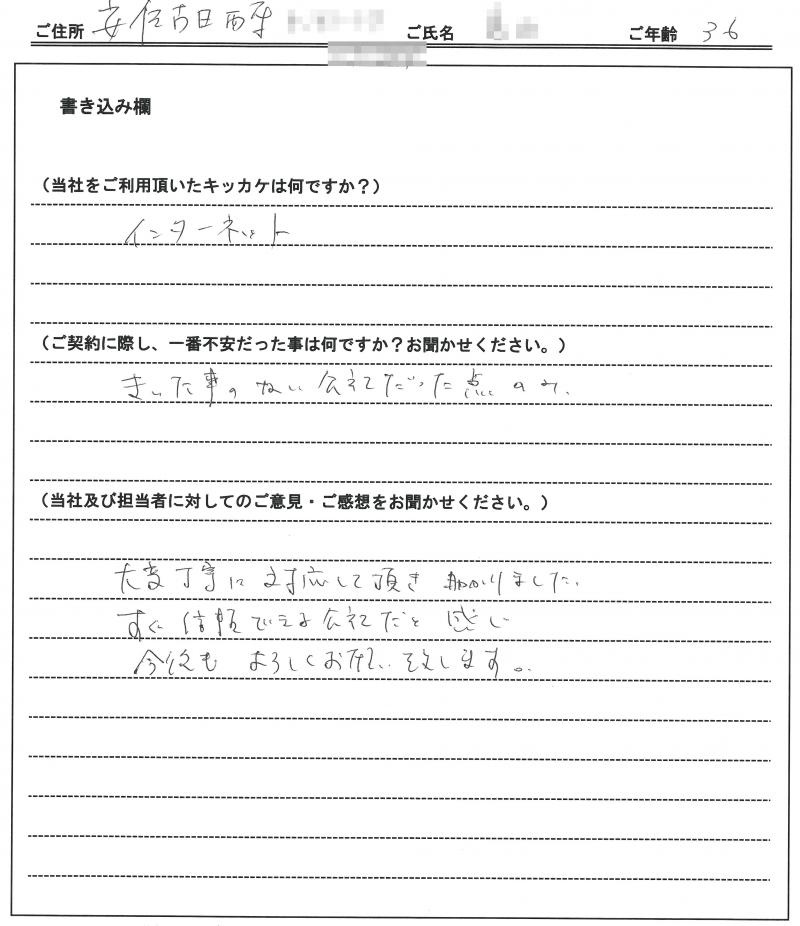 ご住所 安佐南区西原 ご氏名 ご年齢 36
書き込み欄
(当社をご利用頂いたキッカケは何ですか?)
インターネット
(ご契約に際し、一番不安だった事は何ですか?お聞かせください。)
きいた事のない会社だった点のみ。
(当社及び担当者に対してのご意見・ご感想をお聞かせください。)
大変丁寧に対応して頂き助かりました。
すぐ信頼できる会社だと感じ
今後もよろしくお願い致します。